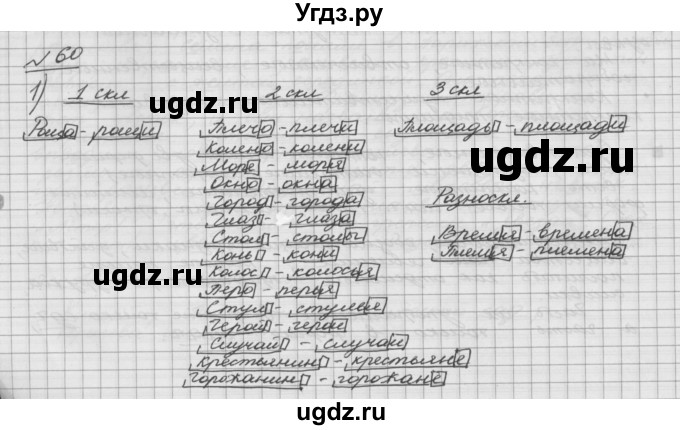 Угдз.ру
№ 60
1) 1 скл 2 скл 3 скл
ugdz.ru ugdz.ru ugdz.ru
Роща - рощи Плечо - плечи Площадь - площади
Колено - колени
Море - моря
Окно - окна
Город - города Разноскл.
Глаз - глаза
Стол - столы Время - времена
Конь - кони Племя - племена
ugdz.ru ugdz.ru
Колос - колосья
Перо - перья
Стул - стулья
Герой - герои
Случай - случаи
ugdz.ru ugdz.ru
Крестьянин - крестьяне
Горожанин - горожане
ugdz.ru